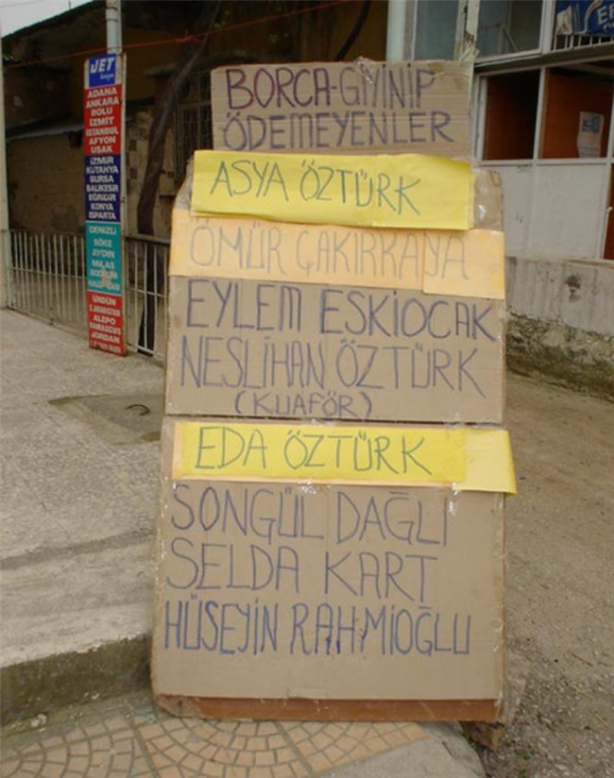 BORCA-GİYİNİP
ÖDEMEYENLER
ASYA ÖZTÜRK
ÖMÜR ÇAKIRKAYA
EYLEM ESKİOCAK
NESLİHAN ÖZTÜRK
(KUAFÖR)
EDA ÖZTÜRK
SONGÜL DAĞLI
SELDA KART
HÜSEYİN RAHMİOĞLU
JET
ADANA
ANKARA
BOLU
İZMİT
İSTANBUL
AFYON
UŞAK
İZMİR
KÜTAHYA
BURSA
BALIKESİR
EĞRİDİR
KONYA
ISPARTA
DENİZLİ
SÖKE
AYDIN
MİLAS
BODRUM
ALEPO
DAMASCUS
JORDAN